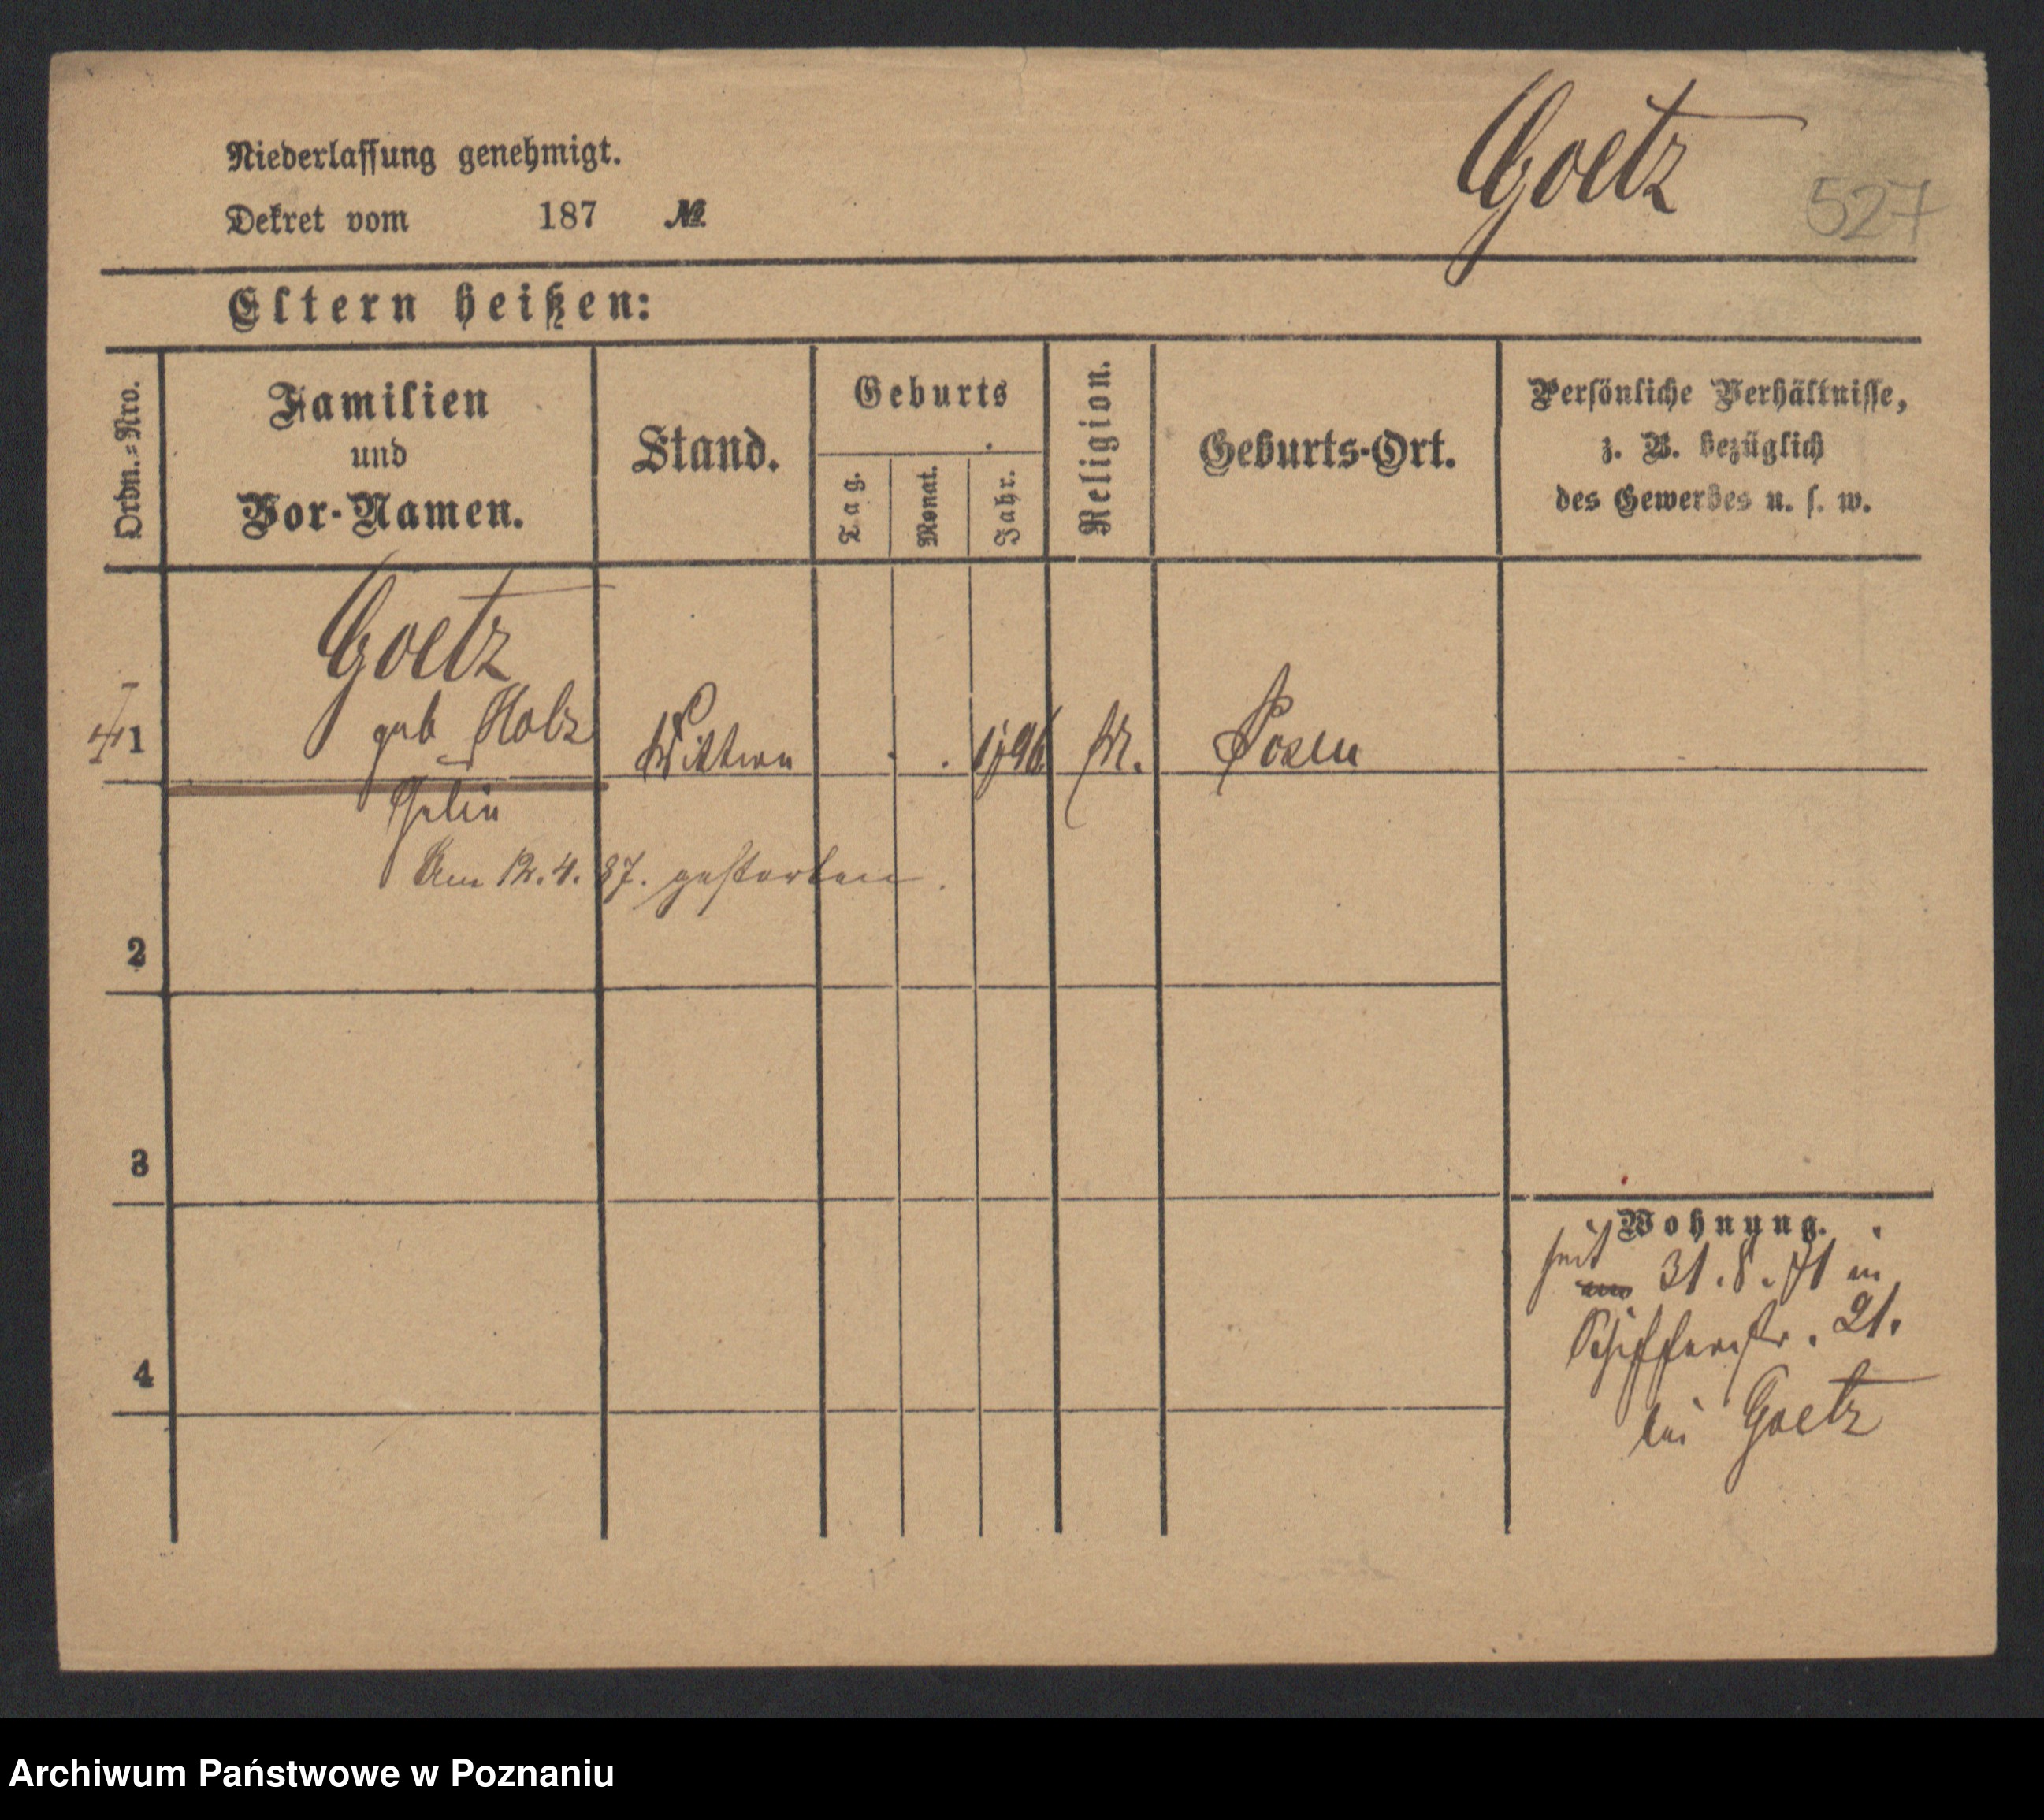 Niederlassung genehmigt.
Dekret vom 187 №
Goetz
527
Eltern heißen:
Ordn.-Nro.
Familien
und
Vor-Namen.
Stand.
Geburts
Tag.
Monat.
Jahr.
Religion.
Geburts-Ort.
Persönliche Verhältnisse,
z. B. bezüglich
des Gewerbes u. s. w.
Goetz
geb Holz
1 Wittwe 1796 Posen
Am 12.4.87. gestorben.
2
3
4
Wohnung.
seit
31.8.71 in
Schifferstr. 21.
bei Goetz
Archiwum Państwowe w Poznaniu